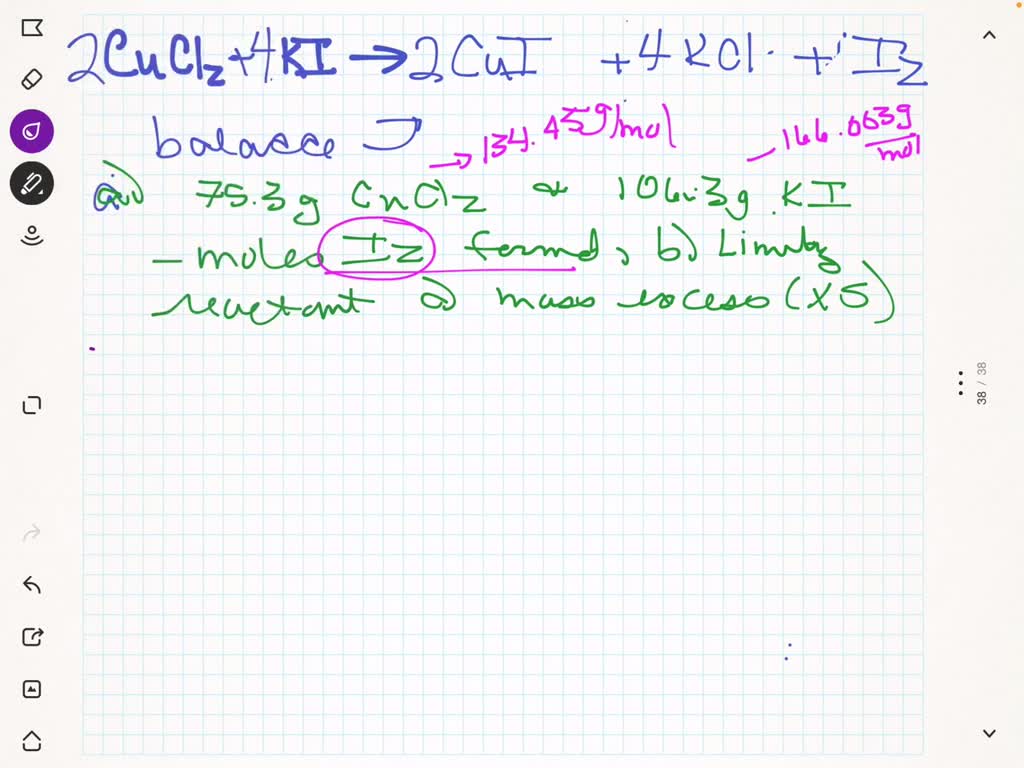 2CuCl2+4KI→2CuI +4KCl + I2
balance
→134.45g/mol 166.0053g/mol
a) 75.3g CuCl2 & 106.3g KI
- moles I2 formed, b) Limiting
reactant a) mass excess (XS)
38 / 38